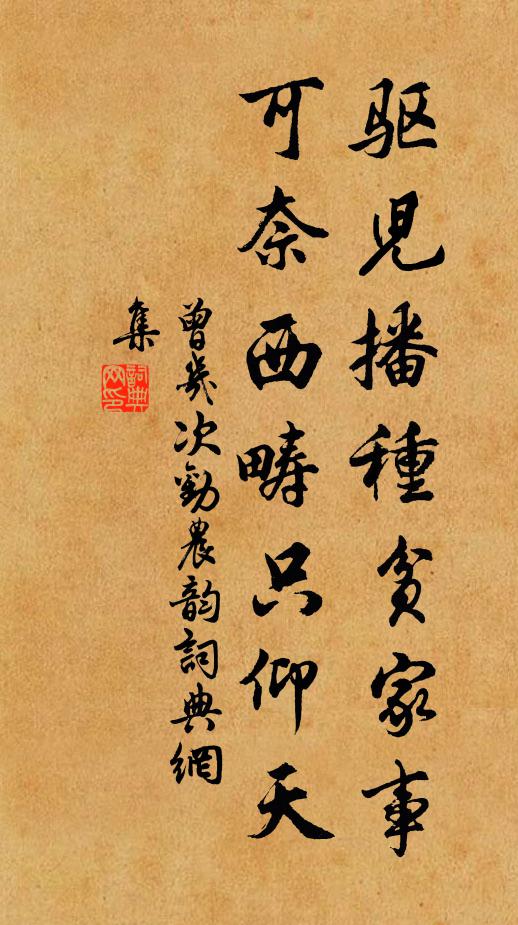 驱児播種貧家事
可奈西疇只仰天
曾幾次勸農韵詞典網
集
詞典
网印